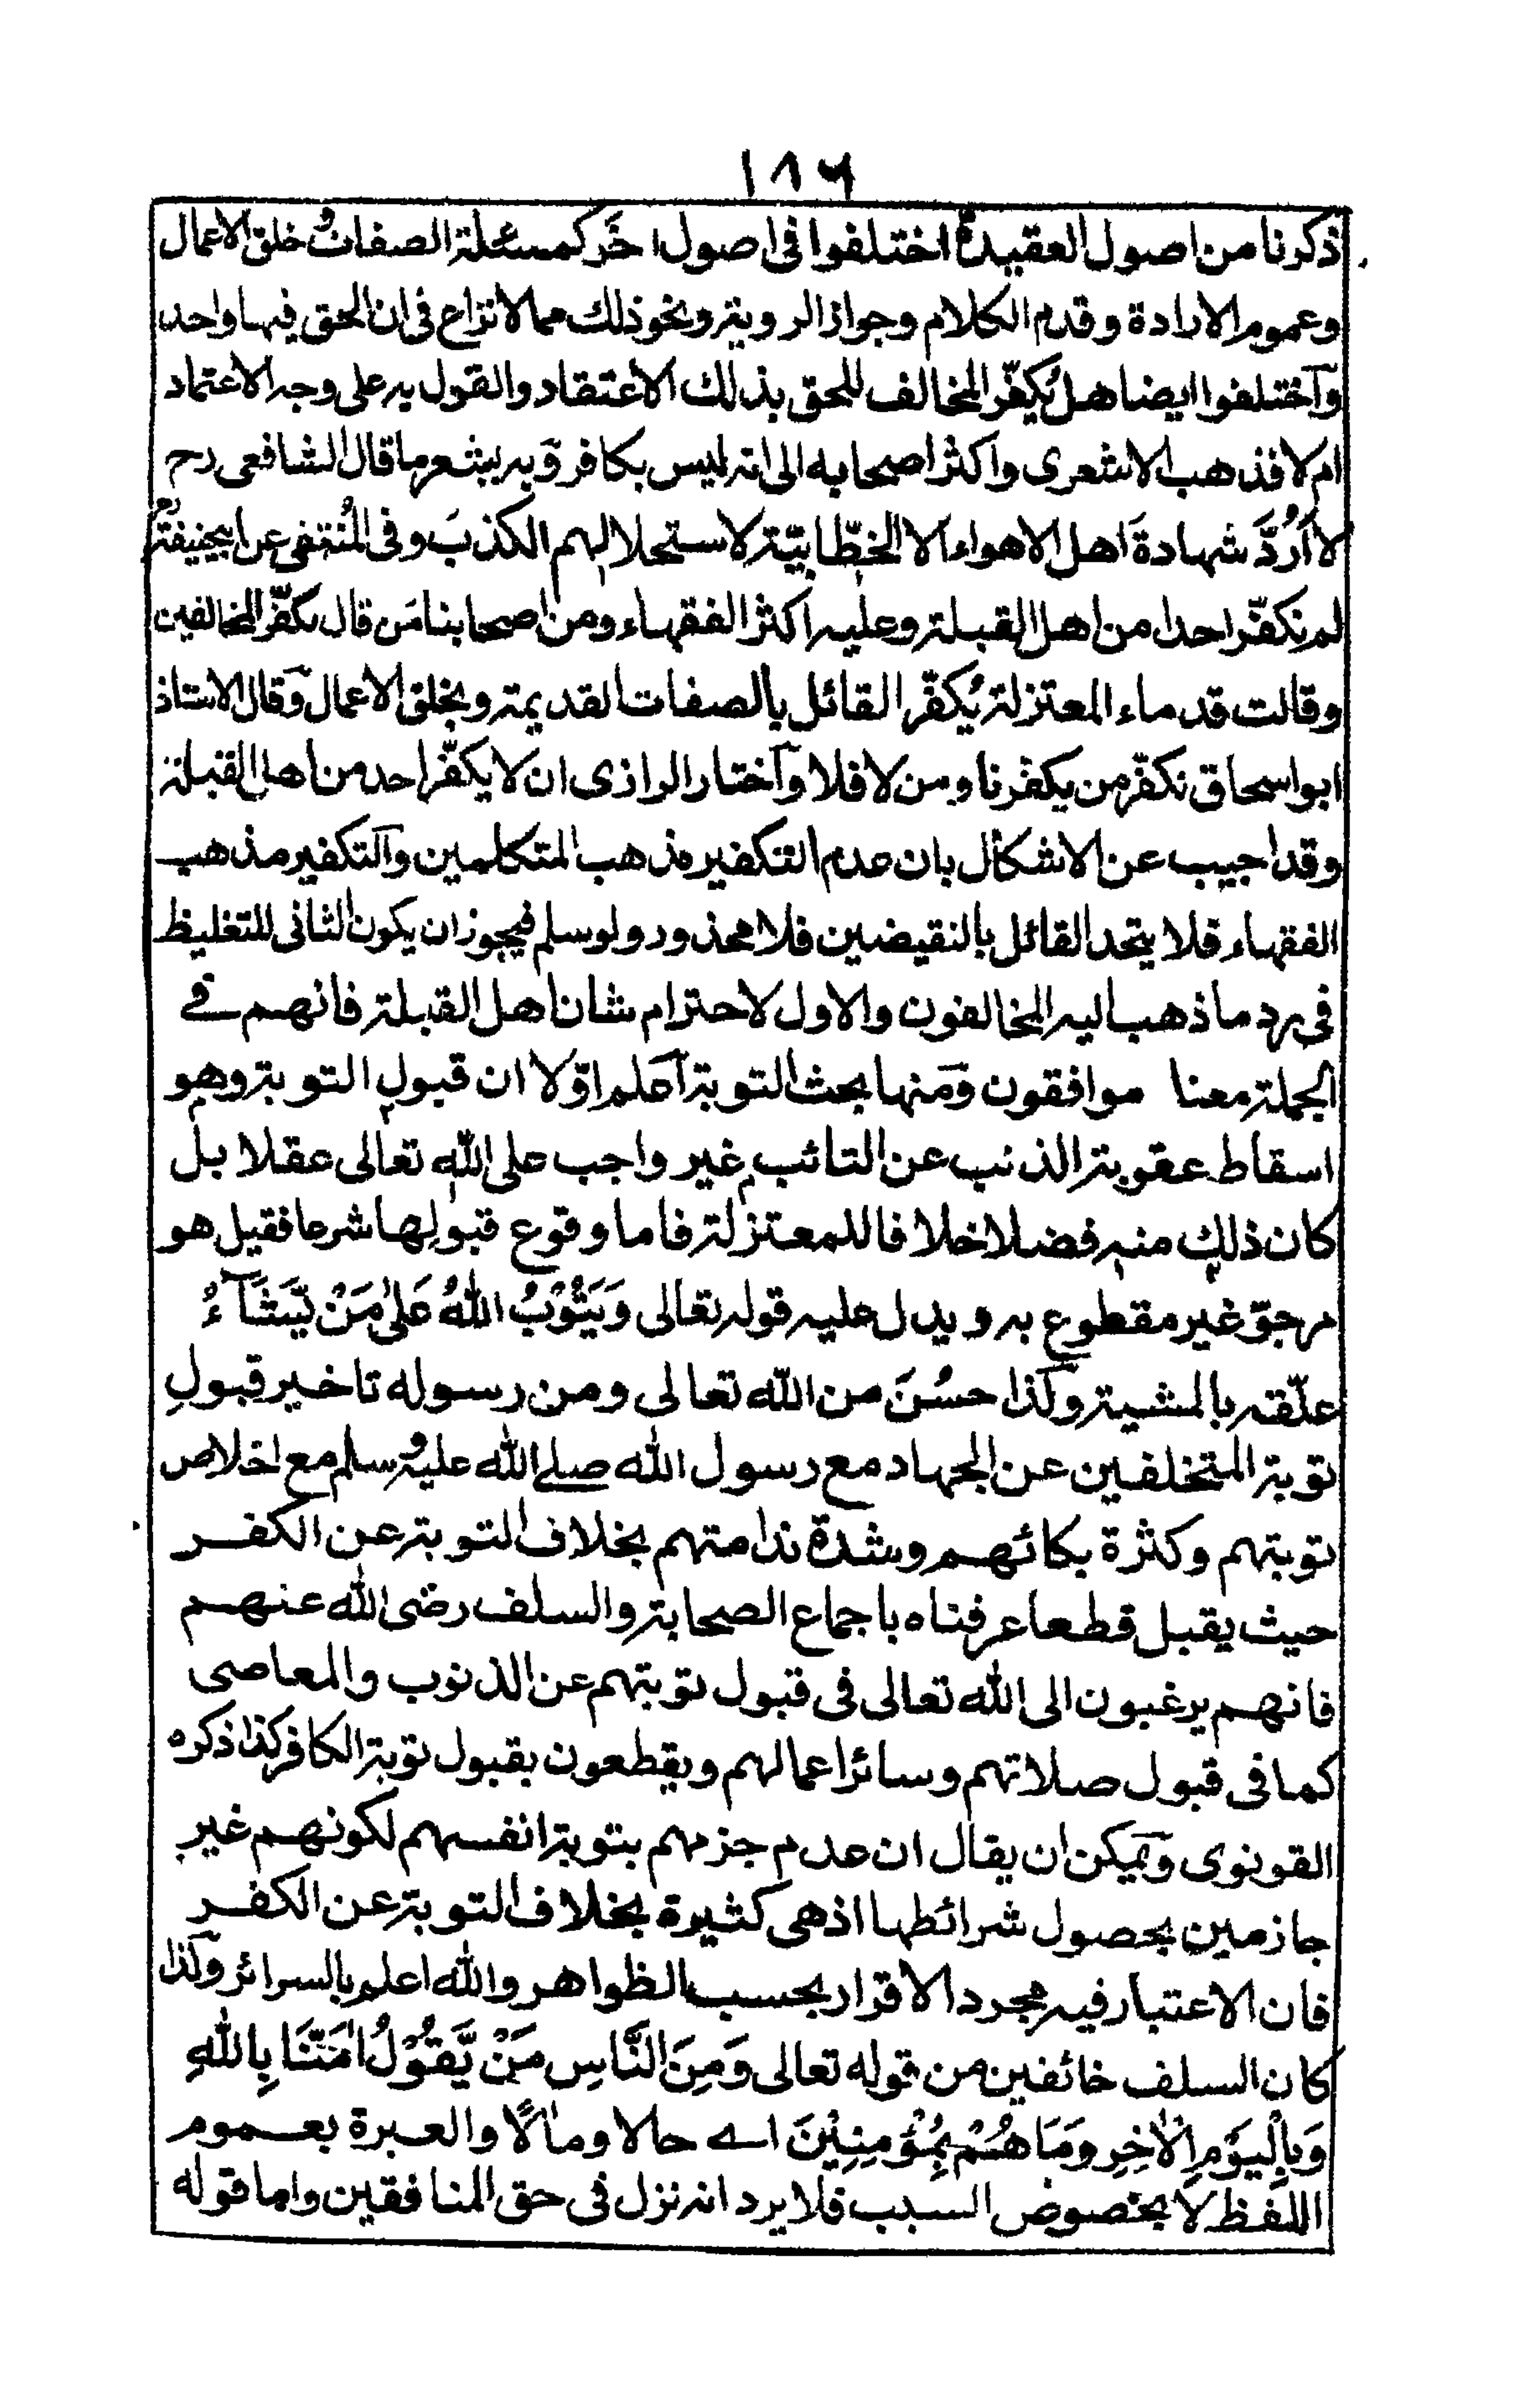 ١٨٦
ذكرنا من اصول العقيدة اختلفوا فى اصول اخَر كمسئلة الصفات و خلق الاعمال
وعموم الارادة وقدم الكلام وجواز الروية ونحو ذلك مما لا نزاع فى ان الحق فيها واحد
واختلفوا ايضا هل يُكفّر المخالف للحق بذلك الاعتقاد والقول به على وجه الاعتماد
ام لا فذهب الاشعرى واكثر اصحابه الى انه ليس بكافر وبه يشعر ما قال الشافعى رح
لا اَرُدّ شهادةَ اهل الاهواء الا الخطّابيّة لاستحلالهم الكذبَ وفى المُنتقى عن ابيحنيفة رح
لم نكفّر احدا من اهل القبلة وعليه اكثر الفقهاء ومن اصحابنا مَن قال بكفّر المخالفين
وقالت قدماء المعتزلة يُكفّر القائل بالصفات القديمة وبخلق الاعمال وقال الاستاذ
ابو اسحاق نكفّر من يكفّرنا ومن لا فلا واختار الرازى ان لا يكفّر احد من اهل القبلة
وقد اجيب عن الاشكال بان عدم التكفير مذهب المتكلمين والتكفير مذهب
الفقهاء فلا يتحد القائل بالنقيضين فلا محذور ولو سلم فيجوز ان يكون الثانى للتغليظ
فى رد ما ذهب اليه المخالفون والاول لاحترام شان اهل القبلة فانهم فے
الجملة معنا موافقون ومنها بحث التوبة اعلم اوّلا ان قبول التوبة وهو
اسقاط عقوبة الذنب عن التائب غير واجب على الله تعالى عقلا بل
كان ذلك منه فضلا خلافا للمعتزلة فاما وقوع قبولها شرعا فقيل هو
مرجوّ غير مقطوع به ويدل عليه قوله تعالى وَيَتُوْبُ اللّٰهُ عَلىٰ مَنْ يَّشَآءُ
علّقه بالمشية وكذا حسُنَ من الله تعالى ومن رسوله تاخير قبولِ
توبة المتخلفين عن الجهاد مع رسول الله صلے الله عليه و سلم مع اخلاص
توبتهم وكثرة بكائهم وشدة ندامتهم بخلاف التوبة عن الكفر
حيث يقبل قطعا عرفناه باجماع الصحابة والسلف رضى الله عنهم
فانهم يرغبون الى الله تعالى فى قبول توبتهم عن الذنوب والمعاصى
كما فى قبول صلاتهم وسائر اعمالهم ويقطعون بقبول توبة الكافر كذا ذكره
القونوى ويمكن ان يقال ان عدم جزمهم بتوبة انفسهم لكونهم غير
جازمين بحصول شرائطها اذ هى كثيرة بخلاف التوبة عن الكفر
فان الاعتبار فيه مجرد الاقرار بحسب الظواهر والله اعلم بالسرائر وكذا
كان السلف خائفين من قوله تعالى وَمِنَ النَّاسِ مَنْ يَّقُوْلُ اٰمَنَّا بِاللّٰهِ
وَبِالْيَوْمِ الْاٰخِرِ وَمَا هُمْ بِمُؤْمِنِيْنَ اے حالا ومالًا والعبرة بعموم
اللفظ لا بخصوص السبب فلا يرد انه نزل فى حق المنافقين واما قوله